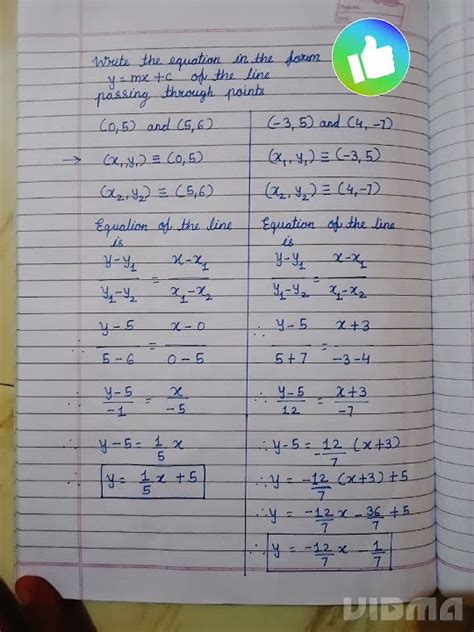 Write the equation in the form
y = mx + c of the line
passing through points
(0,5) and (5,6)
→ (x₁,y₁) ≡ (0,5)
(x₂,y₂) ≡ (5,6)
Equation of the line
is
y-y₁ / y₁-y₂ = x-x₁ / x₁-x₂
y-5 / 5-6 = x-0 / 0-5
∴ y-5 / -1 = x / -5
∴ y-5 = 1/5 x
∴ y = 1/5 x + 5
(-3,5) and (4,-7)
(x₁,y₁) ≡ (-3,5)
(x₂,y₂) ≡ (4,-7)
Equation of the line
is
y-y₁ / y₁-y₂ = x-x₁ / x₁-x₂
∴ y-5 / 5+7 = x+3 / -3-4
∴ y-5 / 12 = x+3 / -7
∴ y-5 = -12/7 (x+3)
∴ y = -12/7 (x+3) + 5
∴ y = -12/7 x - 36/7 + 5
∴ y = -12/7 x - 1/7
VIDMA